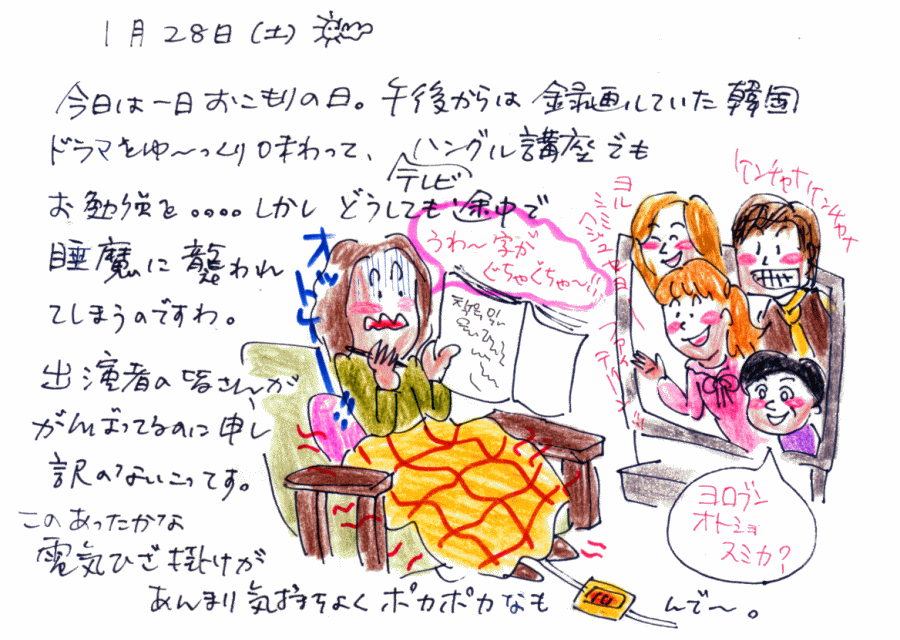 1月28日(土)
今日は一日おこもりの日。午後からは録画していた韓国
ドラマをゆ〜っくり味わって、ハングル講座でも
テレビ
お勉強を。。。。しかしどうしても途中で
睡魔に襲われ
てしまうのですわ。
出演者の皆さんが
がんばってるのに申し
訳のないこってす。
このあったかな
電気ひざ掛けが
あんまり気持ちよくポカポカなも
んで〜。
うわ〜字が
ぐちゃぐちゃ〜!!!
ケンチャナケンチャナ
ファイティーン!!
ヨロブン
オトショ
スミカ?